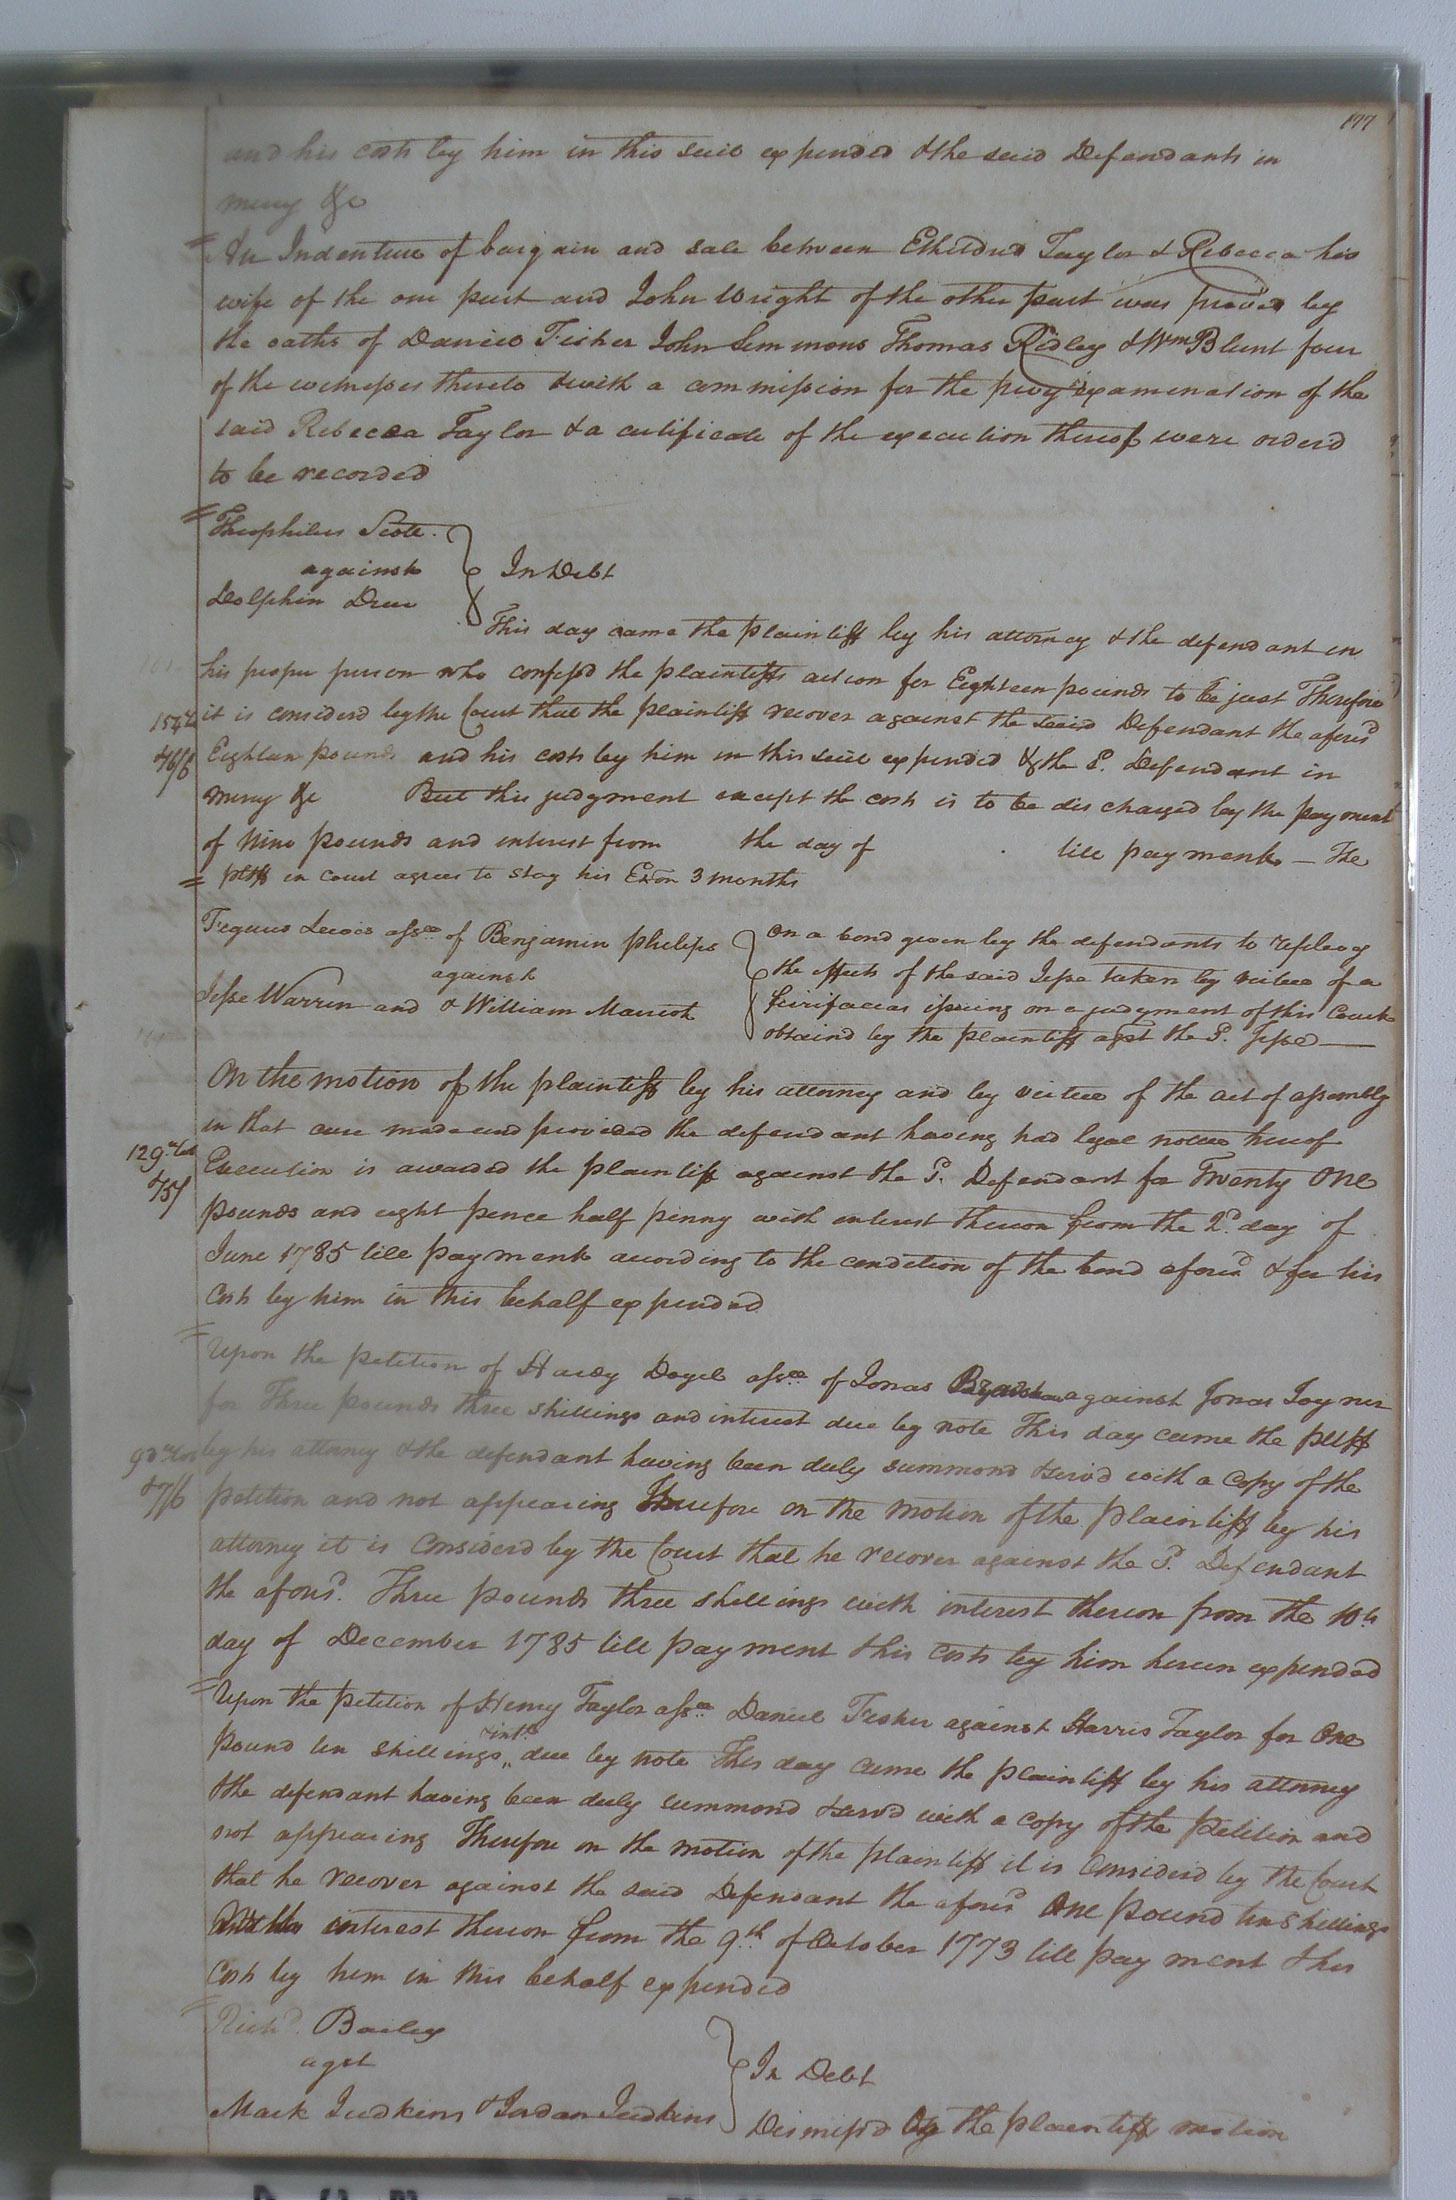 177
and his costs by him in this suit expended & the said Defendants in
mercy &c
An Indenture of bargain and sale between Etheldred Taylor & Rebecca his
wife of the one part and John Wright of the other part was proved by
the oaths of Daniel Fisher John Simmons Thomas Ridley & Wm Blunt four
of the witnesses thereto & with a commission for the privy examination of the
said Rebecca Taylor & a certificate of the execution thereof were orderd
to be recorded
Theophilus Scott
against
Dolphin Drew
In Debt
This day came the plaintiff by his attorney & the defendant in
his proper person who confessd the plaintiffs action for Eighteen pounds to be just Therefore
it is considerd by the Court that the plaintiff recover against the said Defendant the aforesd
Eighteen pounds and his costs by him in this suit expended & the sd. Defendant in
mercy &c But this judgment except the costs is to be discharged by the payment
of Nine pounds and interest from the day of till payment — The
pltff in court agrees to stay his Exon 3 months
Ferguus Lewis assee of Benjamin Philips
against
Jesse Warren and & William Marriott
On a bond given by the defendants to replevy
the effects of the said Jesse taken by virtue of a
feirifacias issuing on a judgment of this Court
obtaind by the plaintiff agst the sd. Jesse
On the motion of the plaintiff by his attorney and by virtue of the act of assembly
in that case made and provided the defendant having had legal notice hereof
Execution is awarded the plaintiff against the sd. Defendant for Twenty One
pounds and eight pence half penny with interest thereon from the 2d. day of
June 1785 till payment according to the condition of the bond aforesd & for his
Costs by him in this behalf expended
Upon the petition of Hardy Doyel assee of Jonas Bradshaw against Jonas Joyner
for Three pounds three shillings and interest due by note This day came the pltff
by his attorney & the defendant having been duly summond & servd with a copy of the
petition and not appearing Therefore on the motion of the plaintiff by his
attorney it is Considerd by the Court that he recover against the sd. Defendant
the aforesd. Three pounds three shillings with interest thereon from the 10th
day of December 1785 till payment & his costs by him herein expended
Upon the petition of Henry Taylor assee Daniel Fisher against Harris Taylor for One
pound ten shillings & intt. due by note This day came the plaintiff by his attorney
& the defendant having been duly summond & servd with a copy of the petition and
not appearing Therefore on the motion of the plaintiff it is Considerd by the Court
that he recover against the said Defendant the aforesd One pound ten Shillings
with interest thereon from the 9th of October 1773 till payment & his
Costs by him in this behalf expended
Richd. Bailey
agst
Mark Judkins & Jordan Judkins
In Debt
Dismissd by the plaintiffs motion